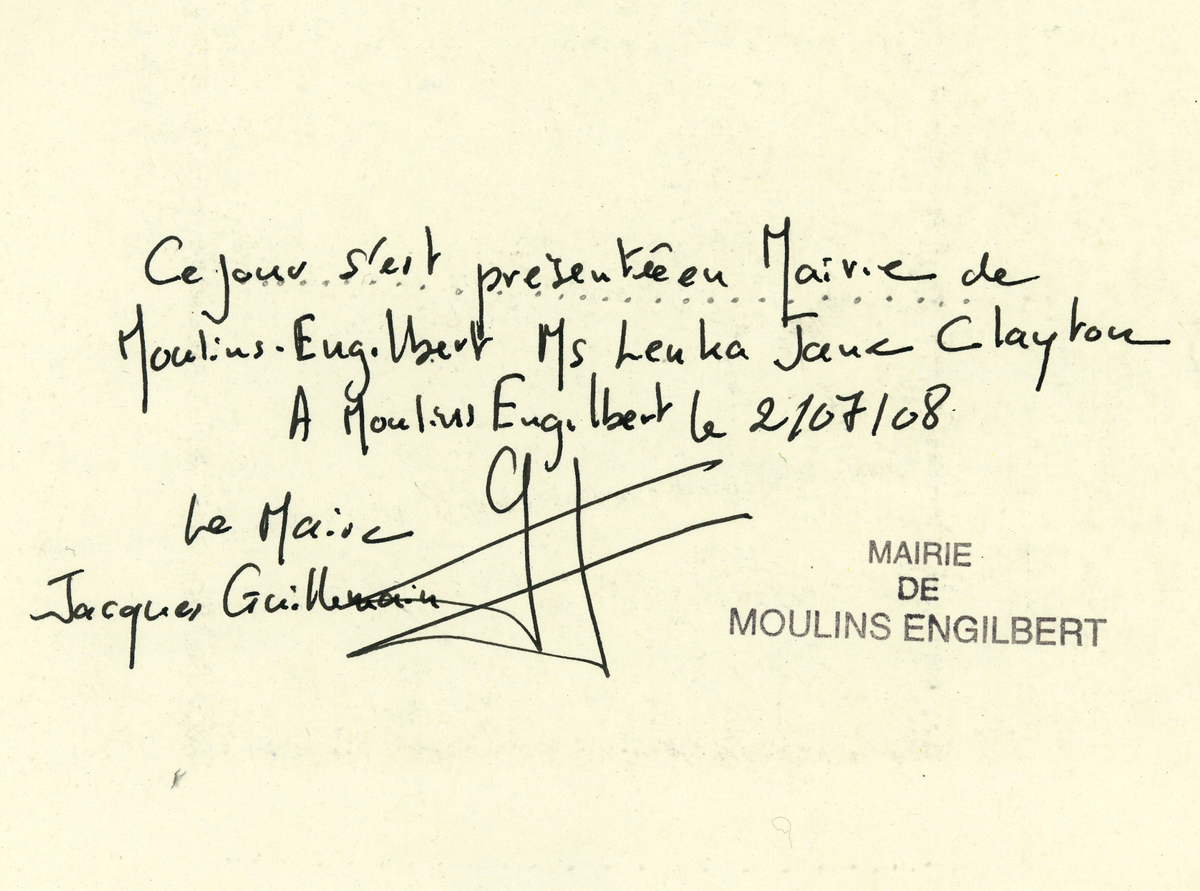 Ce jour s'est présentée en Mairie de
Moulins-Engilbert Ms Lenka Jane Clayton
A Moulins Engilbert le 2/07/08
Le Maire
Jacques Guillemain
MAIRIE
DE
MOULINS ENGILBERT